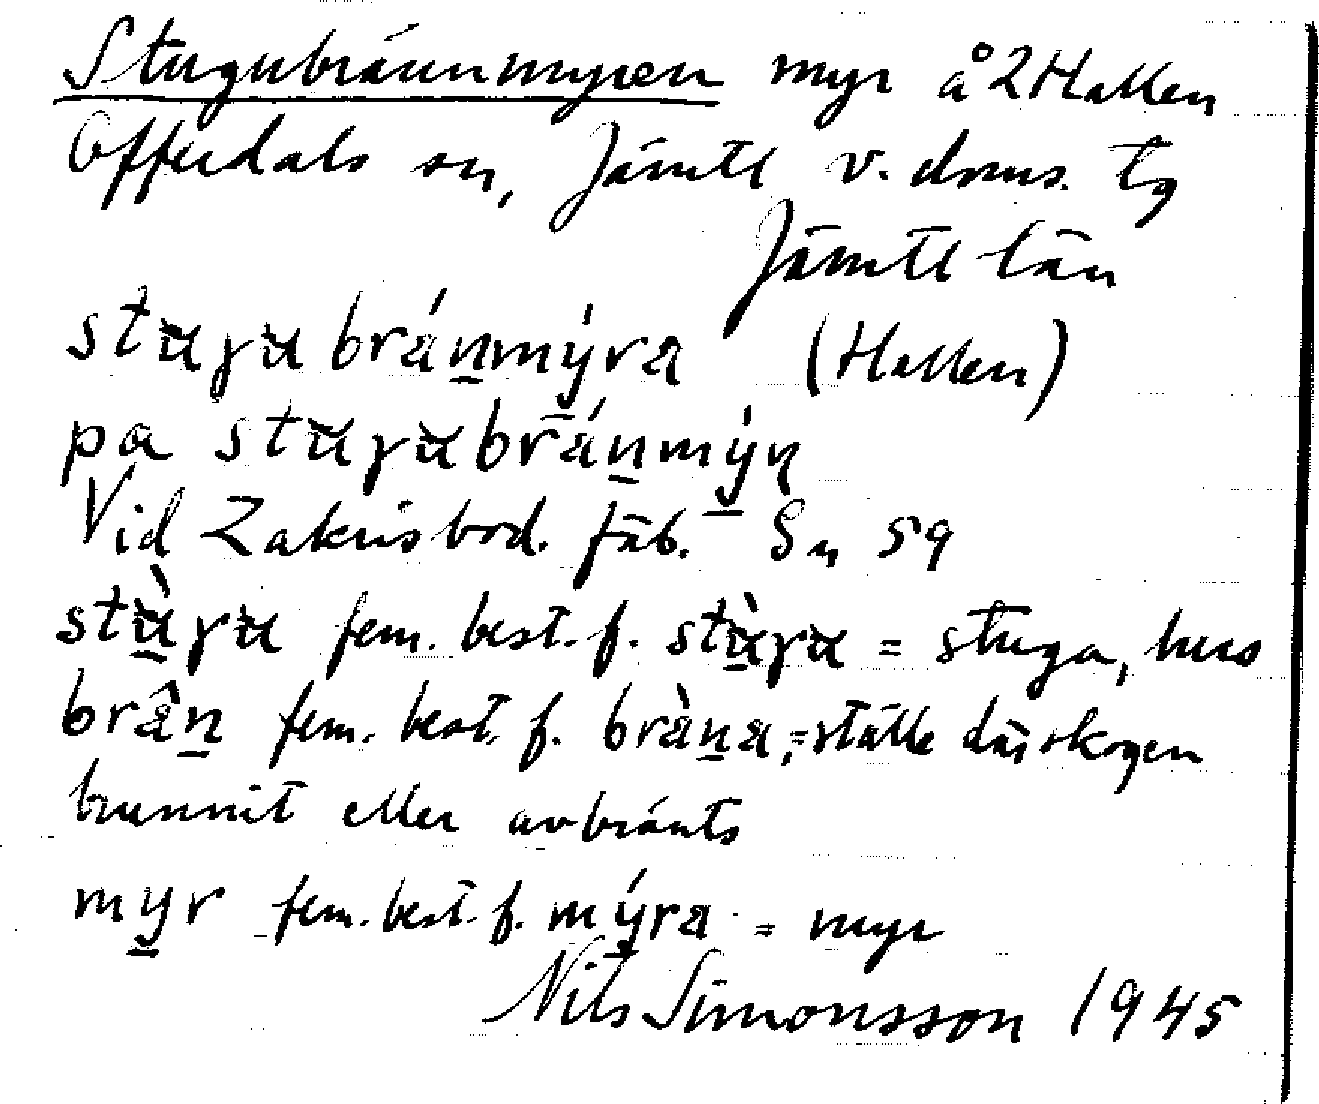 Stugubrännmyren myr å 2 Hallen
Offerdals sn, Jämtl v. doms. tg
Jämtl län
stuγubránmýra (Hallen)
pa stuγubránmýn
Vid Zakrisbod. fäb. Sn 59
stùγu fem. best. f. stùγu = stuga, hus
brân fem. best. f. bràna, = ställe där skogen
brunnit eller avbränts
myr fem. best. f. mýra = myr
Nils Simonsson 1945